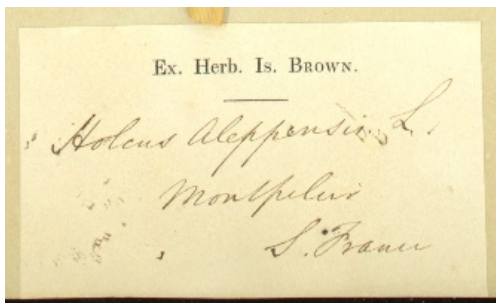 Ex. Herb. Is. BROWN.
Holcus Aleppensis L.
Montpelier
S. France